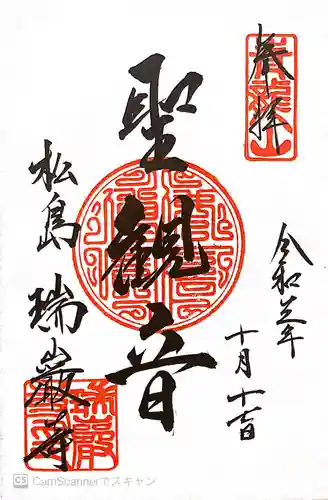 奉拝
令和三年
十月十七日
聖観音
松島 瑞巌寺
CS CamScannerでスキャン